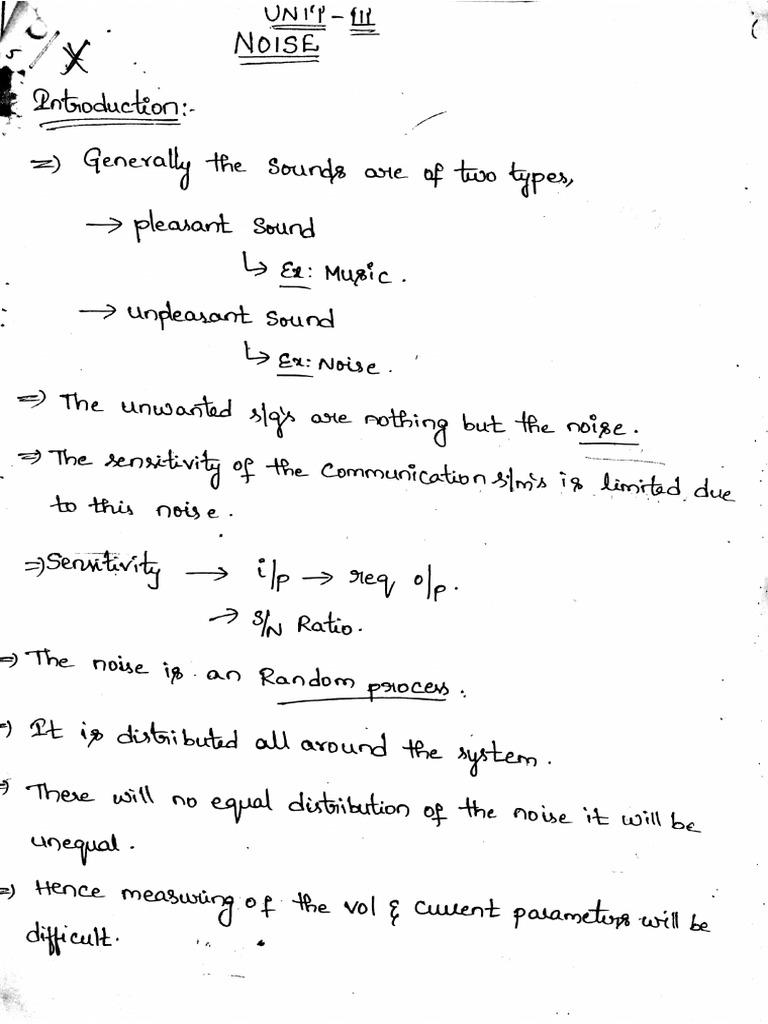 UNIT - III
NOISE
Introduction:-
=> Generally the sounds are of two types,
→ pleasant sound
↳ Ex: Music.
→ unpleasant sound
↳ Ex: Noise.
=> The unwanted s/g's are nothing but the noise.
=> The sensitivity of the communication s/m's is limited due
to this noise.
=> Sensitivity → i/p → req o/p.
→ S/N Ratio.
=> The noise is an Random process.
=> It is distributed all around the system.
=> There will no equal distribution of the noise it will be
unequal.
=> Hence measuring of the vol & current parameters will be
difficult.